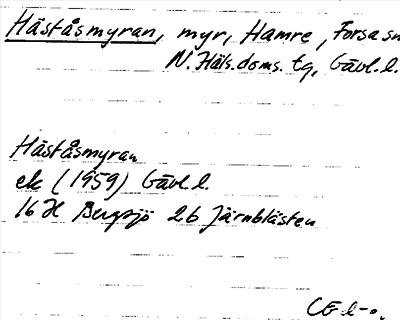 Häståsmyran, myr, Hamre, Forsa sn
N. Häls. doms. tg, Gävl. l.
Häståsmyran
ek (1959) Gävl l.
16 H Bergsjö 2b Järnblästen